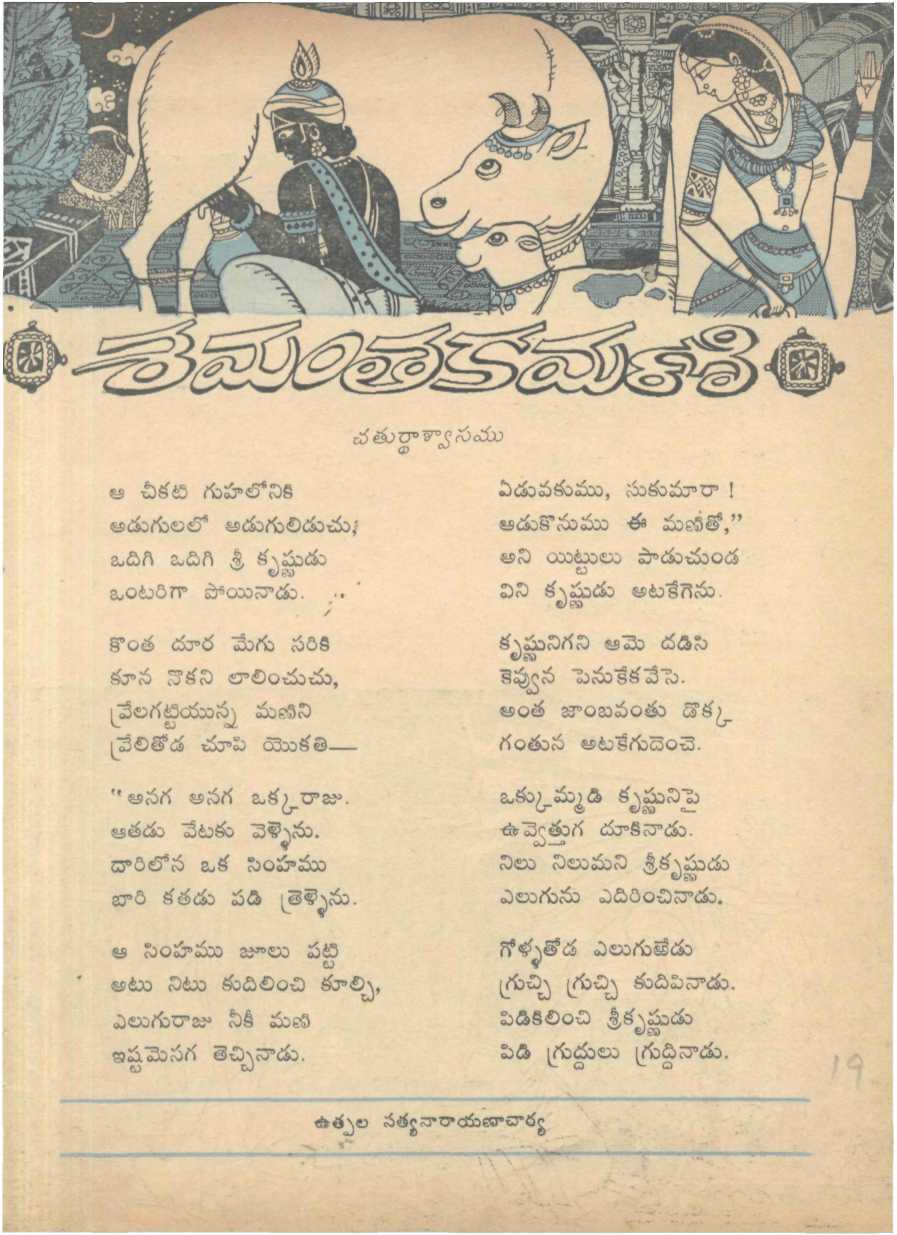 శమంతకమణి
చతుర్థాశ్వాసము
ఆ చీకటి గుహలోనికి
అడుగులలో అడుగులిడుచు,
ఒదిగి ఒదిగి శ్రీ కృష్ణుడు
ఒంటరిగా పోయినాడు.
కొంత దూర మేగు సరికి
కూన నొకని లాలించుచు,
వ్రేలగట్టియున్న మణిని
వ్రేలితోడ చూపి యొకతి—
"అనగ అనగ ఒక్కరాజు.
ఆతడు వేటకు వెళ్ళెను.
దారిలోన ఒక సింహము
బారి కతడు పడి త్రెళ్ళెను.
ఆ సింహము జూలు పట్టి
అటు నిటు కుదిలించి కూల్చి,
ఎలుగురాజు నీకీ మణి
ఇష్టమెసగ తెచ్చినాడు.
ఏడువకుము, సుకుమారా !
ఆడుకొనుము ఈ మణితో,"
అని యిట్టులు పాడుచుండ
విని కృష్ణుడు అటకేగెను.
కృష్ణునిగని ఆమె దడిసి
కెవ్వున పెనుకేకవేసె.
అంత జాంబవంతు డొక్క
గంతున అటకేగుదెంచె.
ఒక్కుమ్మడి కృష్ణునిపై
ఉవ్వెత్తుగ దూకినాడు.
నిలు నిలుమని శ్రీకృష్ణుడు
ఎలుగును ఎదిరించినాడు.
గోళ్ళతోడ ఎలుగుఱేడు
గ్రుచ్చి గ్రుచ్చి కుదిపినాడు.
పిడికిలించి శ్రీకృష్ణుడు
పిడి గ్రుద్దులు గ్రుద్దినాడు.
19
ఉత్పల సత్యనారాయణాచార్య